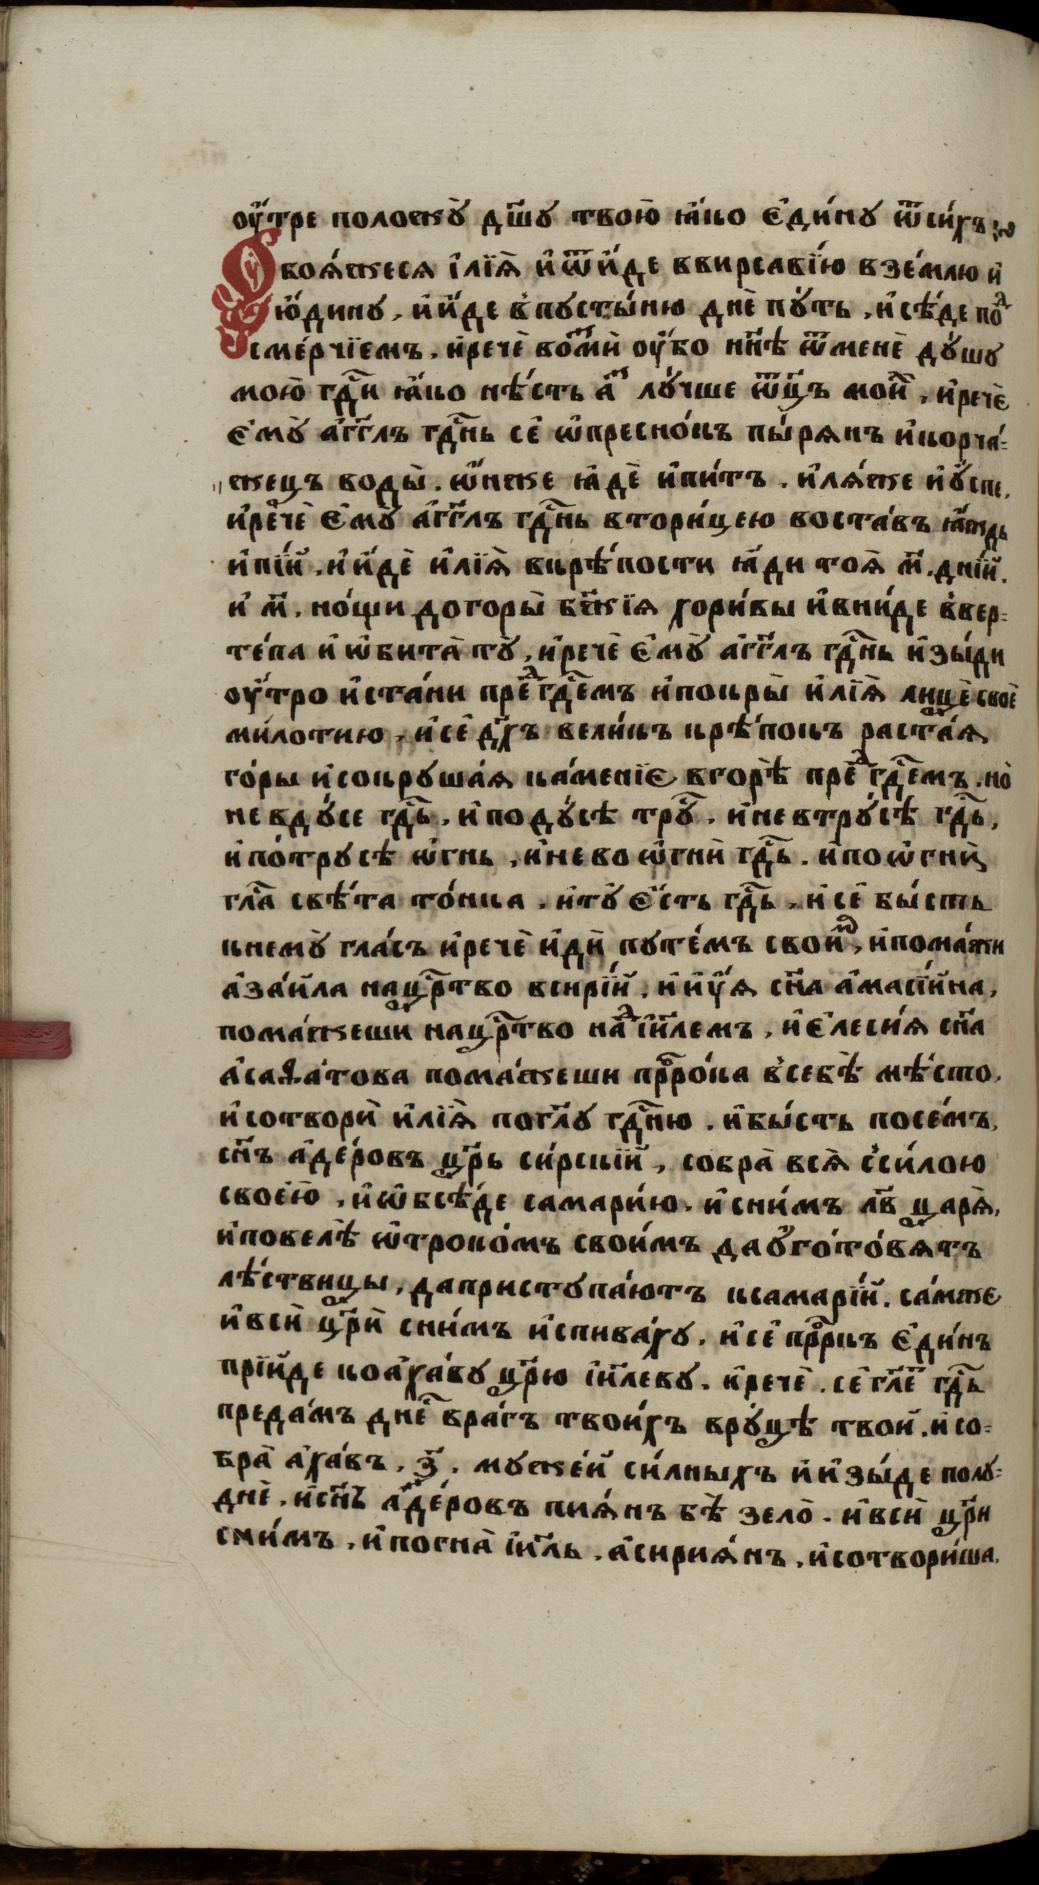 оу҆́тре положу̀ дш҃у твою̀ ꙗ҆́ко є҆ди́ну ѿси́хъ
Ѡ҆боя́жеся і҆лїѧ̀ и҆ѿи́де ввирсавїю взе́млю и҆
ю҆́дину, и҆и҆́де в̾пусты́ню днѐ пу́ть, и҆сѣ́де поⷣ
сме́рчїемъ. и҆речѐ возмѝ оу҆́бо нн҃ѣ ѿменѐ ду́шу
мою̀ гдⷭ҇и ꙗ҆́ко нѣ́сть а҆зⷨ лу́чше ѿц҃ъ мои҆́хⷯ, и҆речѐ
є҆му̀ а҆́гг҃лъ гдⷭ҇нь сѐ ѡ҆пресно́къ пы́рянъ и҆корча́-
жецъ воды̀. ѡ҆́нже ꙗ҆дѐ и҆пи́тъ. и҆ля́же и҆у҆́спе,
и҆речѐ є҆му̀ а҆́гг҃лъ гдⷭ҇нь втори́цею воста́въ ꙗ҆́ждь
и҆пі́й. и҆и҆́дѐ и҆лїѧ̀ вкрѣ́пости ꙗ҆́ди тоѧ̀ м҃. дні́й.
и҆ м҃. но́щи догоры̀ бж҃їя хори́вы и҆вни́де в̾вер-
те́па и҆ѡ҆бита̀ ту̀, и҆речѐ є҆му̀ а҆́гг҃лъ гдⷭ҇нь и҆зы́ди
оу҆́тро и҆ста́ни преⷣ гдⷭ҇емъ и҆покры̀ и҆лїѧ̀ лицѐ своѐ
ми́лотию, и҆сѐ дх҃ъ вели́къ крѣ́покъ растаѧ́я
го́ры и҆сокруша́я ка́менїе вгорѣ̀ преⷣ гдⷭ҇емъ. но̀
не вду́се гдⷭ҇ь, и҆поду́сѣ труⷭ҇, и҆невтру́сѣ гдⷭ҇ь,
и҆по́трусѣ ѡ҆́гнь, и҆нево ѡ҆гни̇̀ гдⷭ҇ь. и҆поѡ҆гнѝ
глⷭ҇а свѣ́та то́нка. и҆ту̀ є҆́сть гдⷭ҇ь, и҆сѐ бы́сть
кнему̀ гла́съ и҆речѐ и҆дѝ путе́мъ свои҆́мⷨ, и҆пома́жи
а҆заи́ла нацрⷭ҇тво всирі́й, и҆и҆у҆́я сн҃а а҆масі́ина,
пома́жеши нацрⷭ҇тво наⷣ і҆и҃лемъ, и҆є҆лесѝя сн҃а
а҆саѳа́това пома́жеши прⷪ҇ро́ка в̾себѣ̀ мѣ́сто.
и҆сотворѝ и҆лїѧ̀ погл҃у гдⷭ҇ню. и҆бы́сть посе́мъ,
сн҃ъ а҆де́ровъ цр҃ь си́рскїй, собра̀ всѧ̀ с̾си́лою
свое́ю, и҆ѡ҆бсѣ́де самари́ю. и҆сни́мъ лв҃ царѧ̀,
и҆повелѣ̀ ѡ҆троко́мъ свои́мъ дау҆гото́вятъ
лѣ́ствицы, даприступа́ютъ ксамарі́й. са́мже
и҆всѝ цр҃ѝ сни́мъ и҆спива́ху. и҆сѐ прⷪ҇ркъ є҆ди́нъ
прїи́де коа҆ха́ву цр҃ю і҆и҃леву. и҆речѐ. сѐ гл҃еⷮ гдⷭ҇ь
преда́мъ дне́сⷭ҇ враги твои́хъ вру́цѣ твои̇̀. и҆со-
бра̀ а҆ха́въ. з҃. муже́й си́лныхъ и҆и҆зы́де полу-
днѐ. и҆сн҃ъ а҆де́ровъ пия́нъ бѣ̀ зело̀. и҆всѝ цр҃и
сни́мъ. и҆погна̀ і҆и҃ль. а҆сирия́нъ. и҆сотвори́ша.